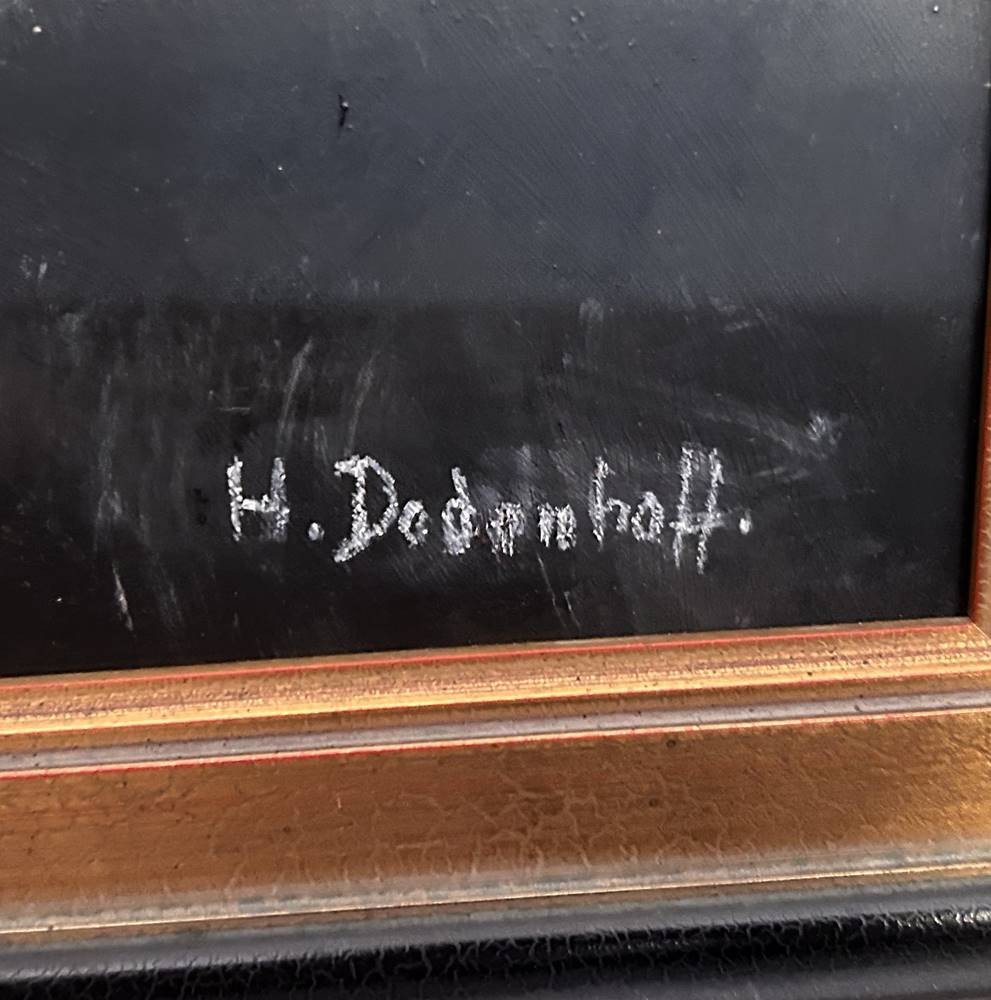 H. Dodomhoff.